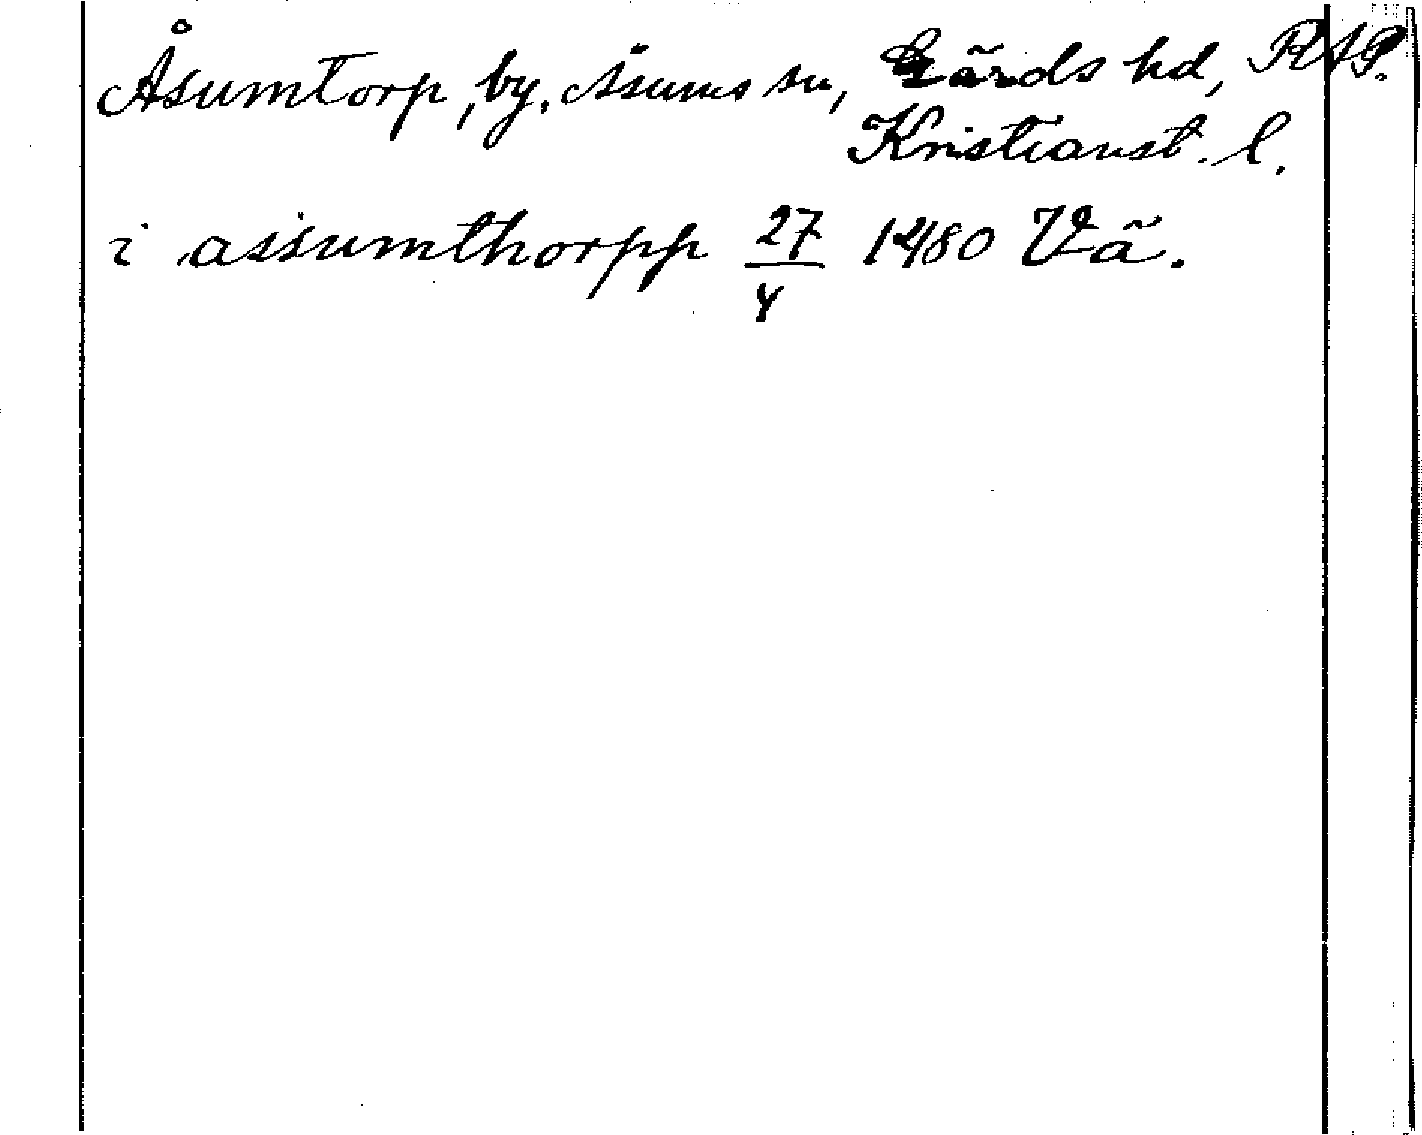 Åsumtorp, by, Åsums sn, Gärds hd, RAP.
Kristianst. l.
i assumthorpp 27/4 1480 Vä.